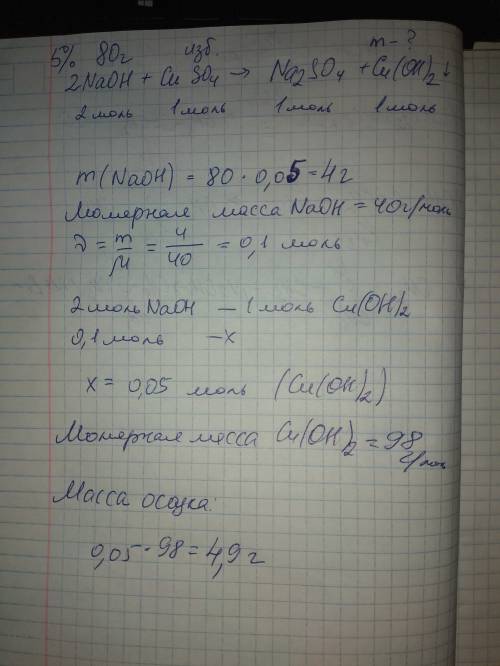 5% 80г изб. m - ?
2NaOH + CuSO₄ → Na₂SO₄ + Cu(OH)₂↓
2 моль 1 моль 1 моль 1 моль
m(NaOH) = 80 · 0,05 = 4г
Молярная масса NaOH = 40 г/моль
ν = m/M = 4/40 = 0,1 моль
2 моль NaOH — 1 моль Cu(OH)₂
0,1 моль — x
x = 0,05 моль (Cu(OH)₂)
Молярная масса Cu(OH)₂ = 98 г/моль
Масса осадка:
0,05 · 98 = 4,9 г